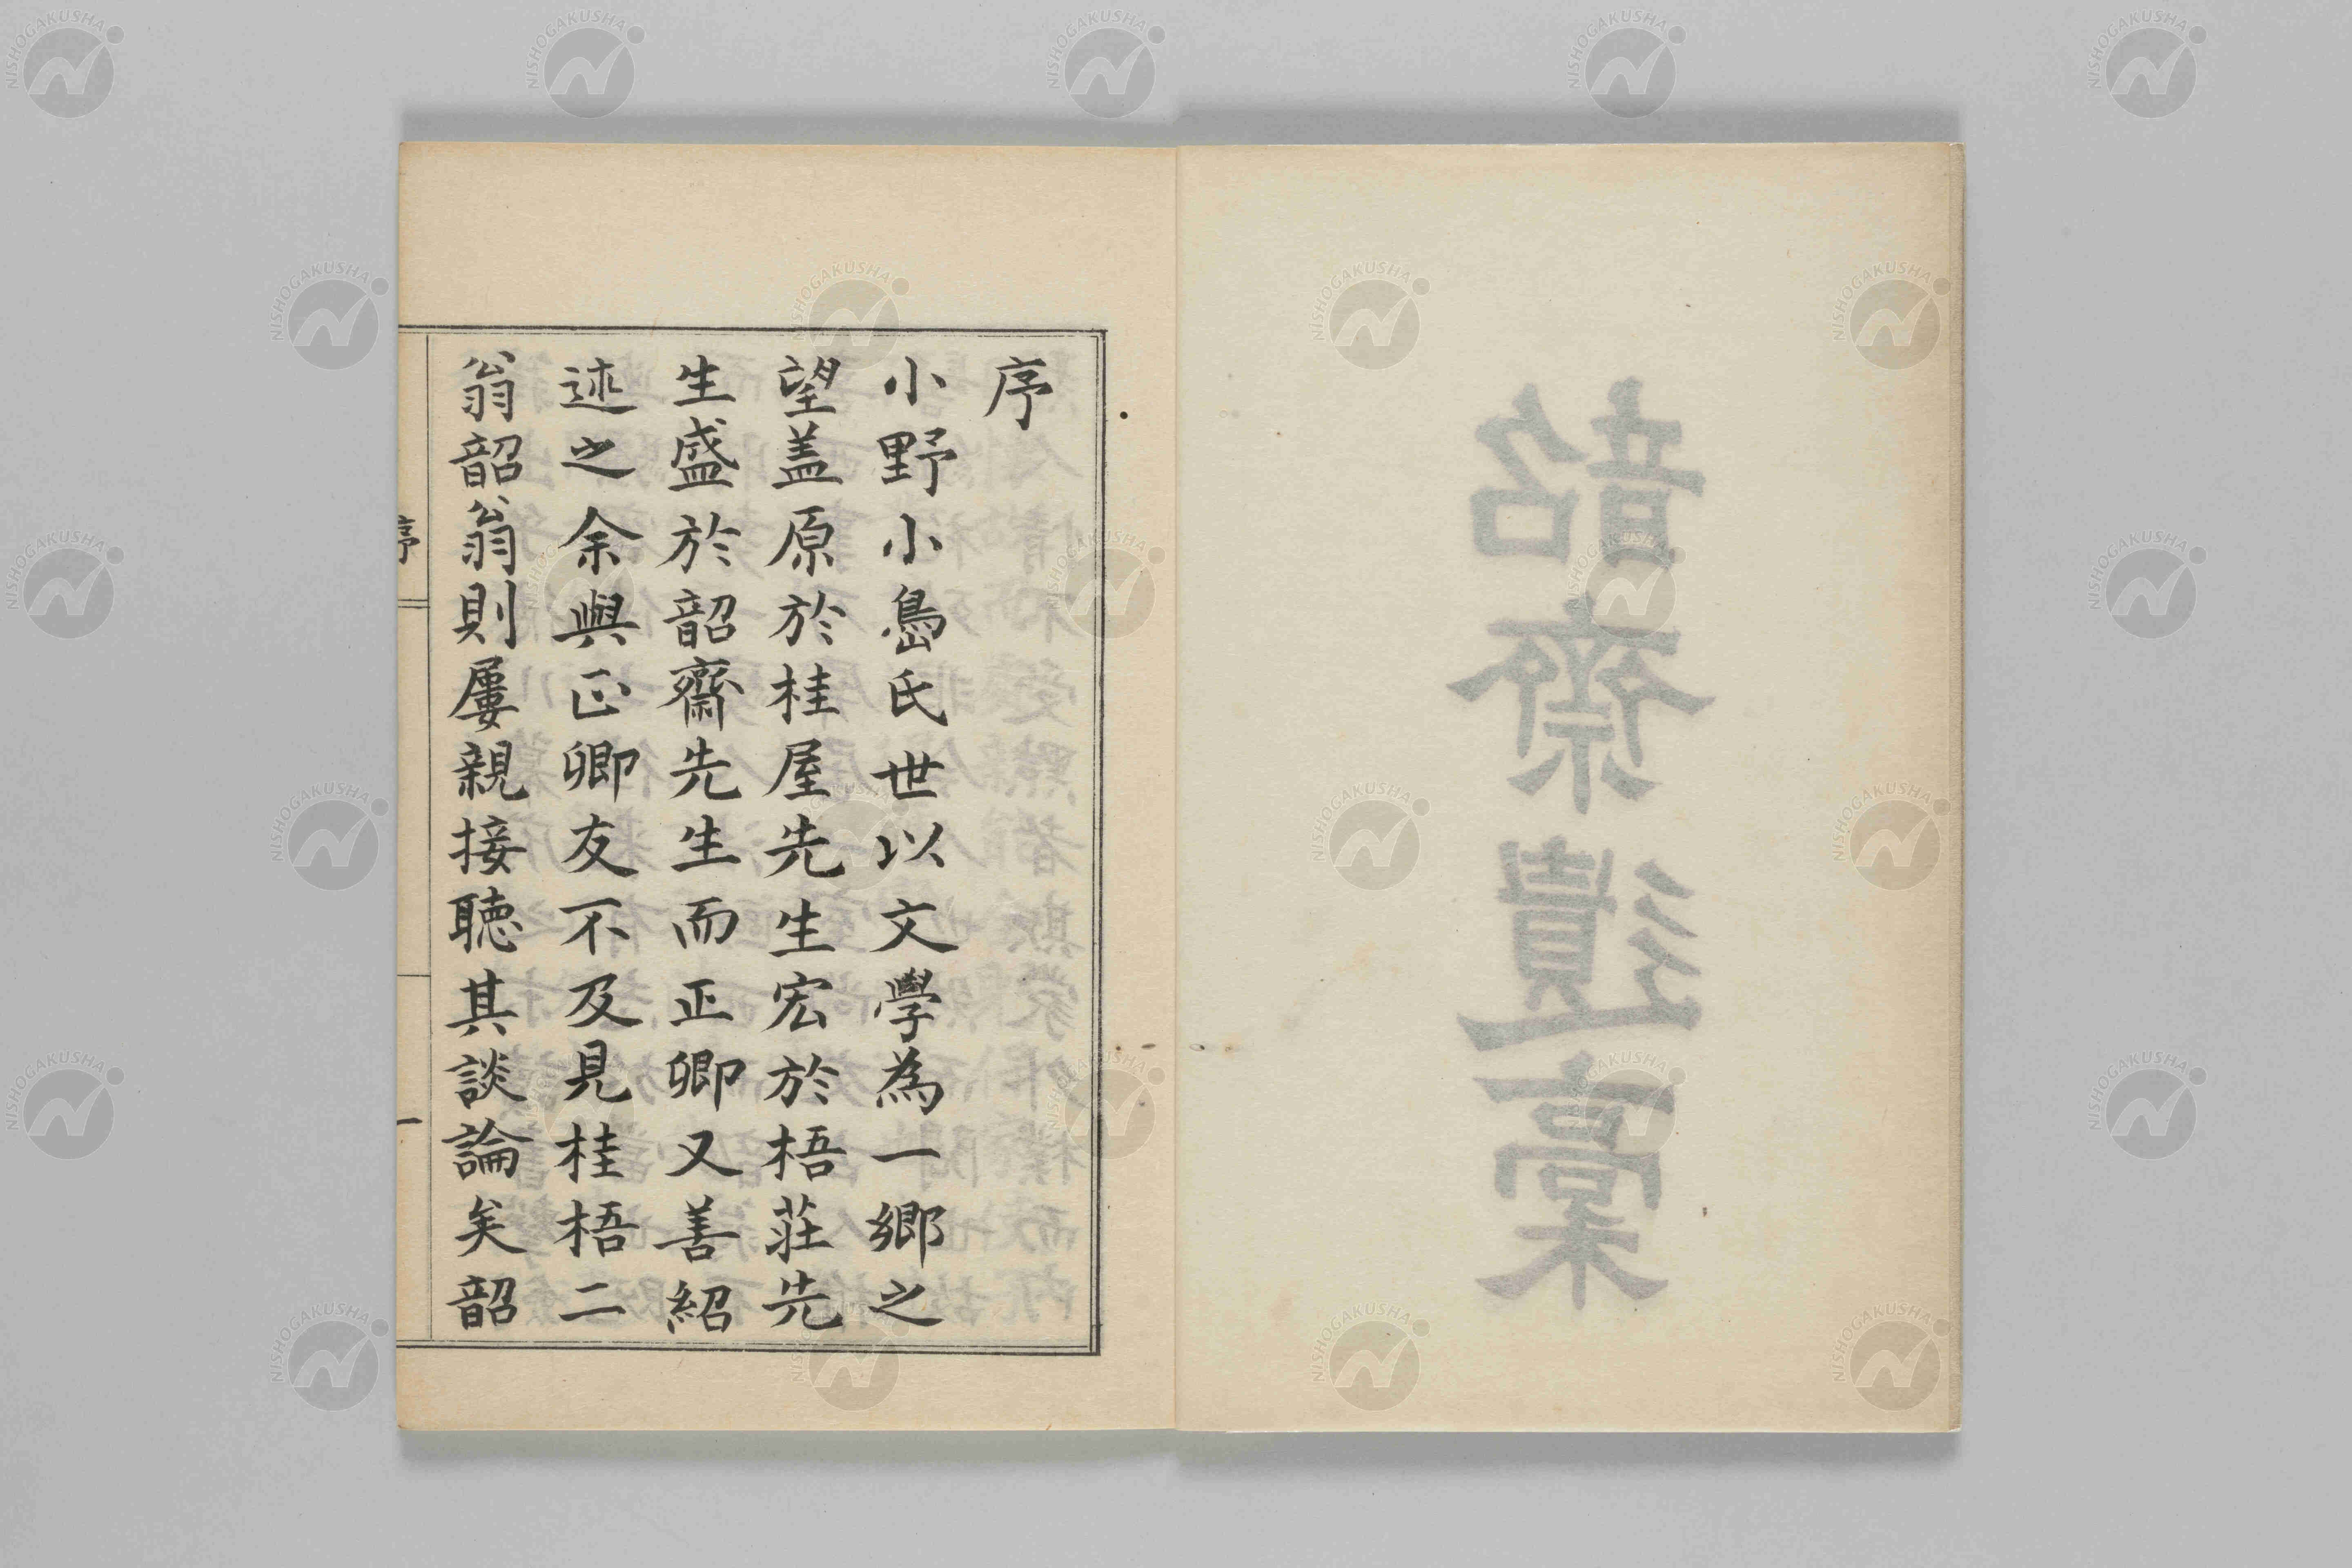 韶齋遺稾
序
小野小島氏世以文學為一鄉之
望盖原於桂屋先生宏於梧莊先
生盛於韶齋先生而正卿又善紹
述之余與正卿友不及見桂梧二
翁韶翁則屢親接聴其談論矣韶
序
一
NISHOGAKUSHA